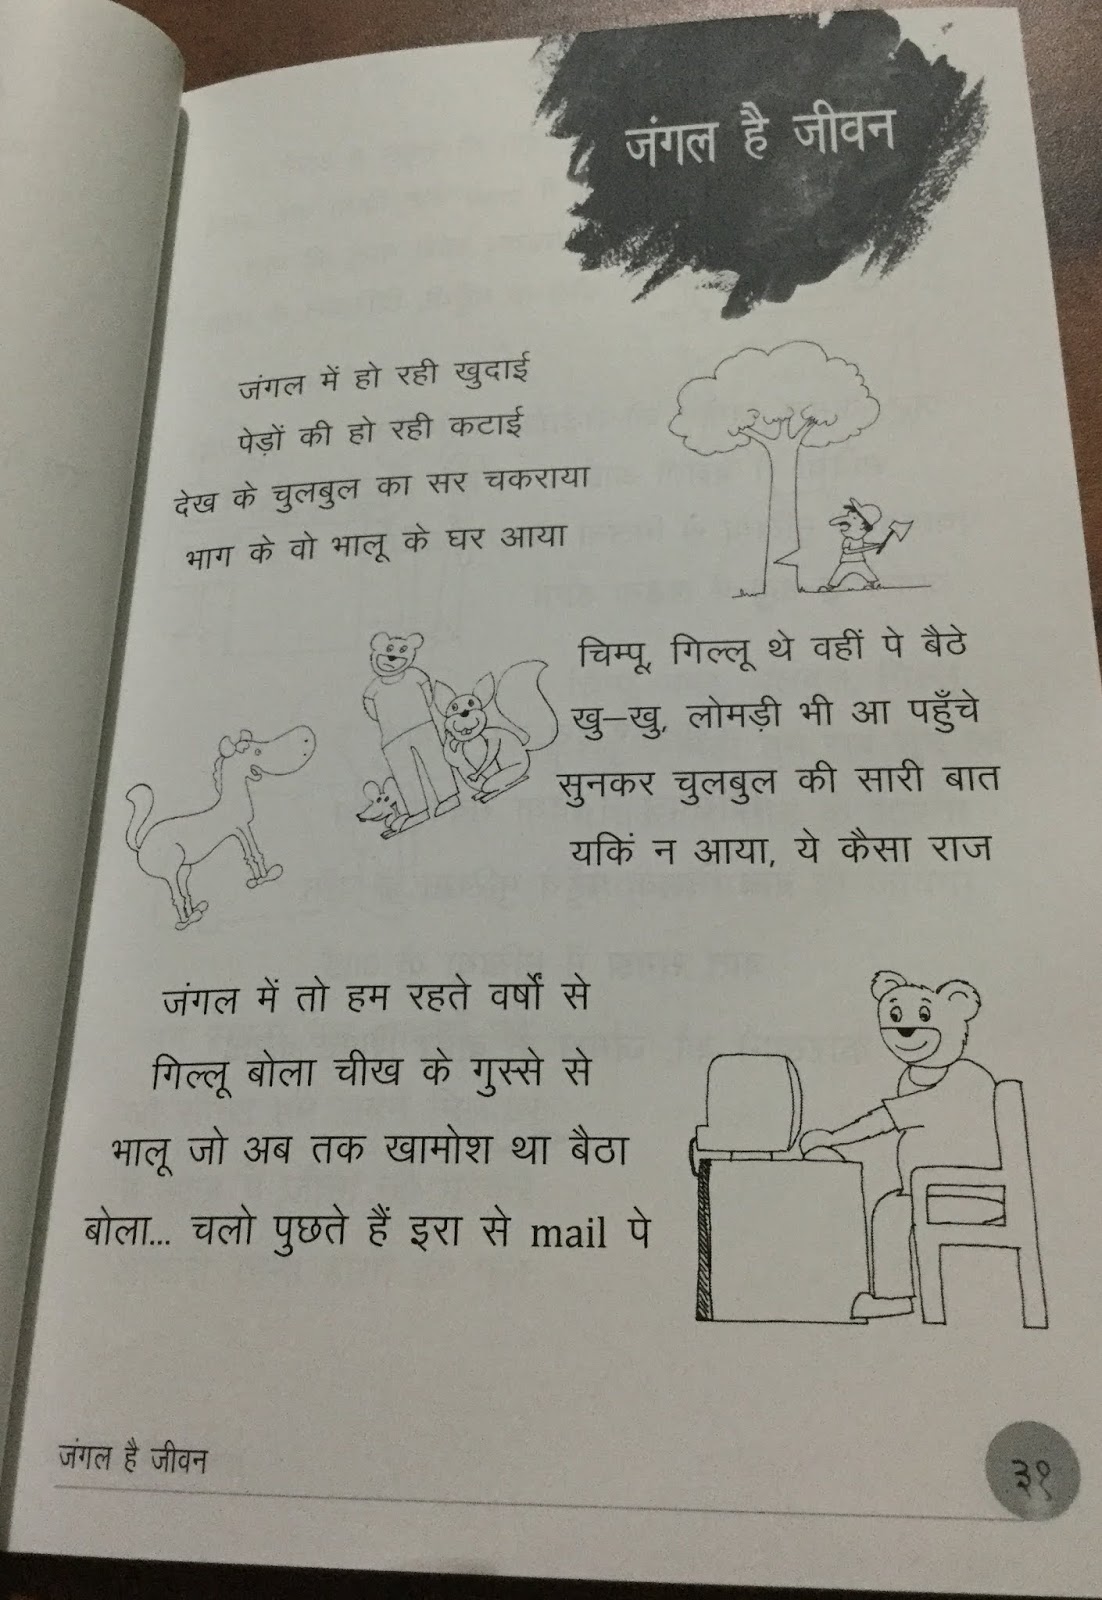 जंगल है जीवन
जंगल में हो रही खुदाई
पेड़ों की हो रही कटाई
देख के चुलबुल का सर चकराया
भाग के वो भालू के घर आया
चिम्पू, गिल्लू थे वहीं पे बैठे
खु–खु, लोमड़ी भी आ पहुँचे
सुनकर चुलबुल की सारी बात
यकिं न आया, ये कैसा राज
जंगल में तो हम रहते वर्षों से
गिल्लू बोला चीख के गुस्से से
भालू जो अब तक खामोश था बैठा
बोला... चलो पुछते हैं इरा से mail पे
जंगल है जीवन
३१